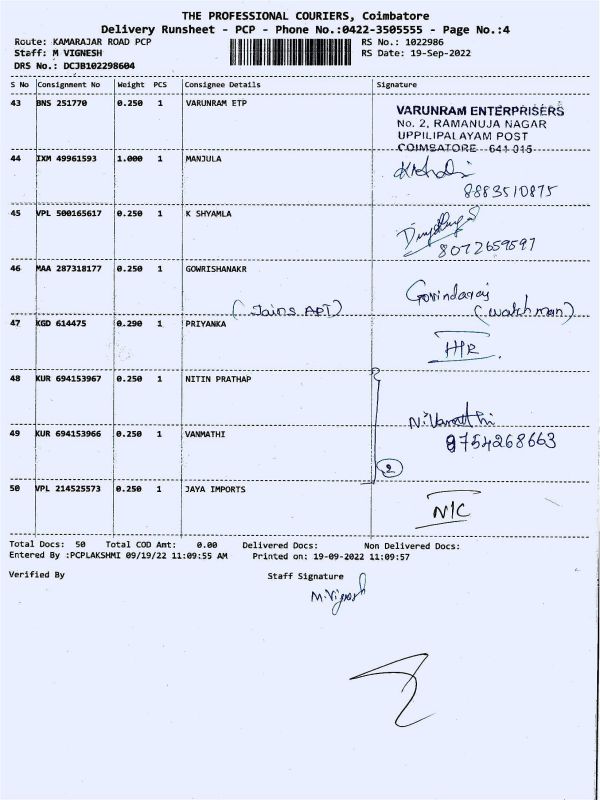 THE PROFESSIONAL COURIERS, Coimbatore
Delivery Runsheet - PCP - Phone No.:0422-3505555 - Page No.:4
Route: KAMARAJAR ROAD PCP RS No.: 1022986
Staff: M VIGNESH RS Date: 19-Sep-2022
DRS No.: DCJB102298604
S No Consignment No Weight PCS Consignee Details Signature
43 BNS 251770 0.250 1 VARUNRAM ETP
VARUNRAM ENTERPRISERS
No. 2, RAMANUJA NAGAR
UPPILIPALAYAM POST
COIMBATORE 641 015
44 IXM 49961593 1.000 1 MANJULA
8883510875
45 VPL 500165617 0.250 1 K SHYAMLA
8072659597
46 MAA 287318177 0.250 1 GOWRISHANAKR
Govindaraj
(Jains APT) (watch man)
47 KGD 614475 0.290 1 PRIYANKA
H/R
48 KUR 694153967 0.250 1 NITIN PRATHAP
N. Vanmathi
49 KUR 694153966 0.250 1 VANMATHI 9754268663
2
50 VPL 214525573 0.250 1 JAYA IMPORTS
N/C
Total Docs: 50 Total COD Amt: 0.00 Delivered Docs: Non Delivered Docs:
Entered By :PCPLAKSHMI 09/19/22 11:09:55 AM Printed on: 19-09-2022 11:09:57
Verified By Staff Signature
M.Vignesh